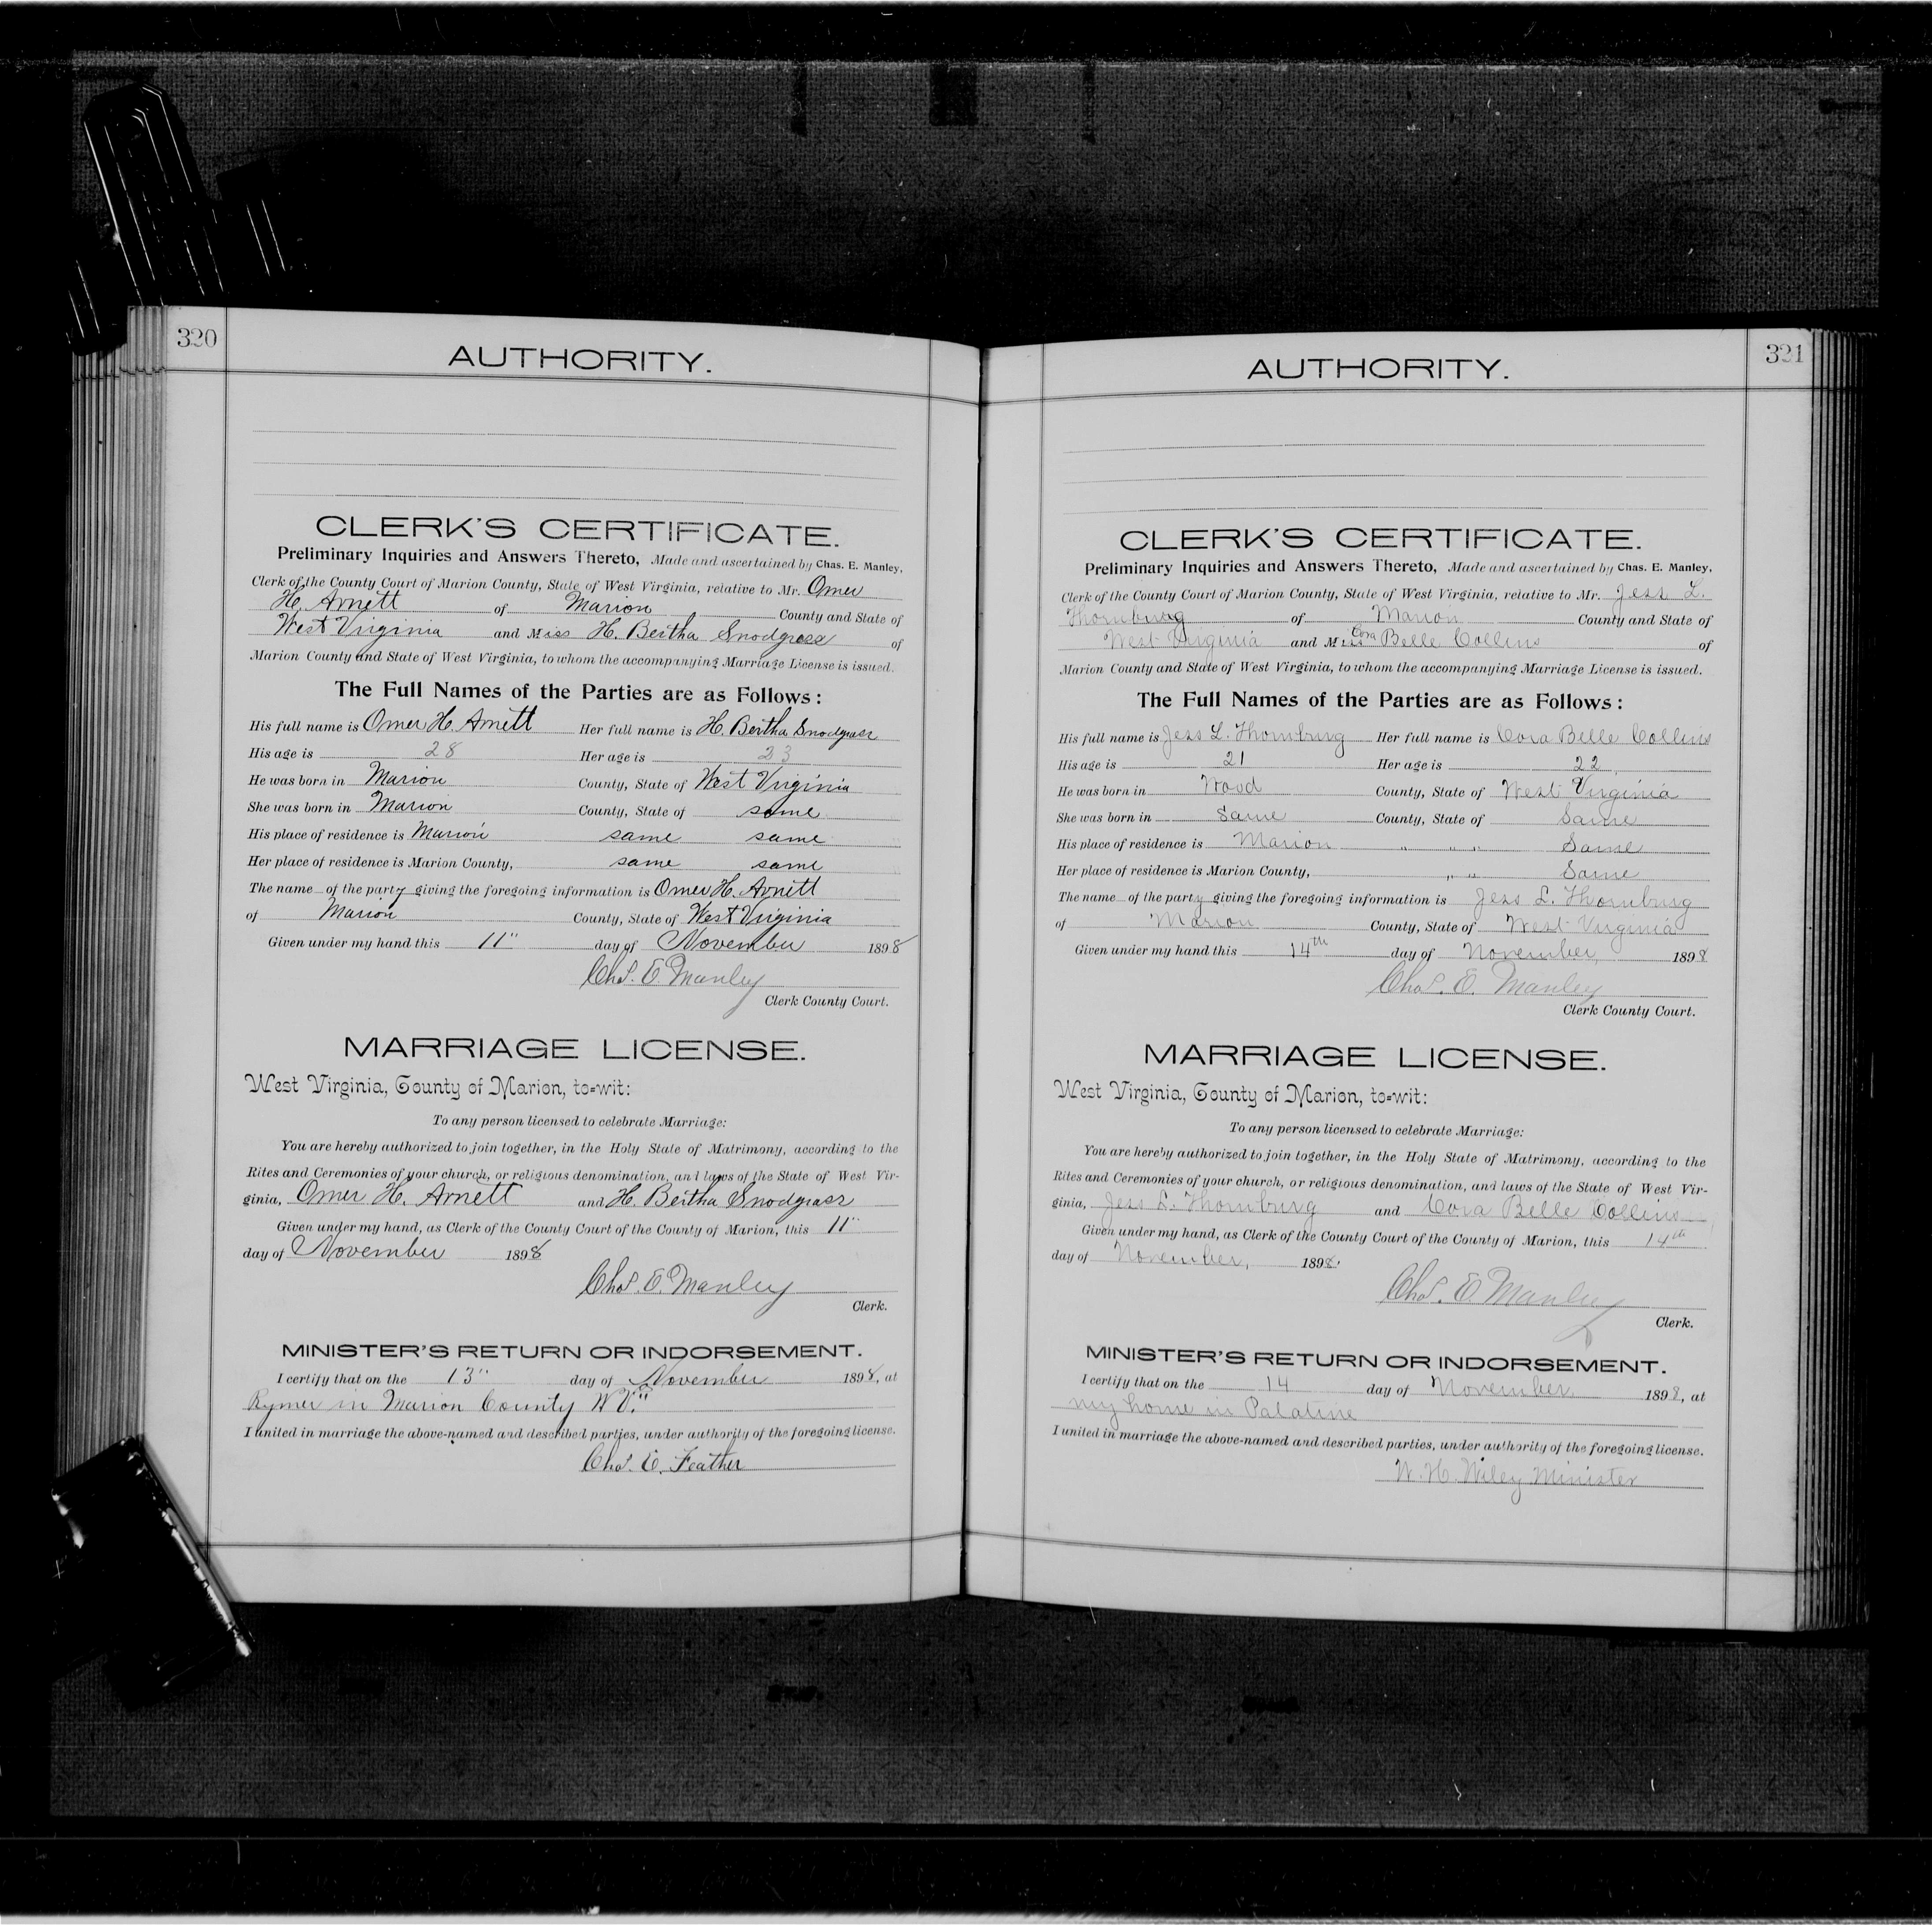 320
AUTHORITY.
CLERK'S CERTIFICATE.
Preliminary Inquiries and Answers Thereto, Made and ascertained by Chas. E. Manley,
Clerk of the County Court of Marion County, State of West Virginia, relative to Mr. Omer
H. Arnett of Marion County and State of
West Virginia and Miss H. Bertha Snodgrass of
Marion County and State of West Virginia, to whom the accompanying Marriage License is issued.
The Full Names of the Parties are as Follows:
His full name is Omer H. Arnett Her full name is H. Bertha Snodgrass
His age is 28 Her age is 23
He was born in Marion County, State of West Virginia
She was born in Marion County, State of same
His place of residence is Marion same same
Her place of residence is Marion County, same same
The name of the party giving the foregoing information is Omer H. Arnett
of Marion County, State of West Virginia
Given under my hand this 11" day of November 1898
Chas. E. Manley
Clerk County Court.
MARRIAGE LICENSE.
West Virginia, County of Marion, to=wit:
To any person licensed to celebrate Marriage:
You are hereby authorized to join together, in the Holy State of Matrimony, according to the
Rites and Ceremonies of your church, or religious denomination, and laws of the State of West Vir-
ginia, Omer H. Arnett and H. Bertha Snodgrass
Given under my hand, as Clerk of the County Court of the County of Marion, this 11"
day of November 1898
Chas. E. Manley
Clerk.
MINISTER'S RETURN OR INDORSEMENT.
I certify that on the 13" day of November 1898, at
Rymer in Marion County W.Va.
I united in marriage the above-named and described parties, under authority of the foregoing license.
Chas. E. Feather
321
AUTHORITY.
CLERK'S CERTIFICATE.
Preliminary Inquiries and Answers Thereto, Made and ascertained by Chas. E. Manley,
Clerk of the County Court of Marion County, State of West Virginia, relative to Mr. Jess L.
Thornburg of Marion County and State of
West Virginia and Miss Cora Belle Collins of
Marion County and State of West Virginia, to whom the accompanying Marriage License is issued.
The Full Names of the Parties are as Follows:
His full name is Jess L. Thornburg Her full name is Cora Belle Collins
His age is 21 Her age is 22
He was born in Wood County, State of West Virginia
She was born in Same County, State of Same
His place of residence is Marion " " " Same
Her place of residence is Marion County, " " Same
The name of the party giving the foregoing information is Jess L. Thornburg
of Marion County, State of West Virginia
Given under my hand this 14th day of November, 1898
Chas. E. Manley
Clerk County Court.
MARRIAGE LICENSE.
West Virginia, County of Marion, to=wit:
To any person licensed to celebrate Marriage:
You are hereby authorized to join together, in the Holy State of Matrimony, according to the
Rites and Ceremonies of your church, or religious denomination, and laws of the State of West Vir-
ginia, Jess L. Thornburg and Cora Belle Collins
Given under my hand, as Clerk of the County Court of the County of Marion, this 14th
day of November, 1898.
Chas. E. Manley
Clerk.
MINISTER'S RETURN OR INDORSEMENT.
I certify that on the 14 day of November 1898, at
my home in Palatine
I united in marriage the above-named and described parties, under authority of the foregoing license.
W. H. Wiley Minister